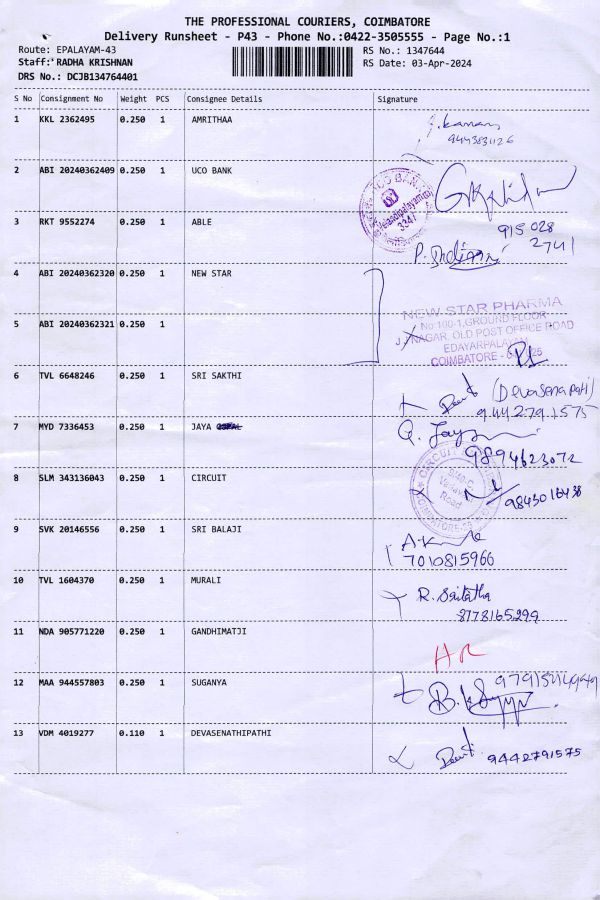 THE PROFESSIONAL COURIERS, COIMBATORE
Delivery Runsheet - P43 - Phone No.:0422-3505555 - Page No.:1
Route: EPALAYAM-43 RS No.: 1347644
Staff: RADHA KRISHNAN RS Date: 03-Apr-2024
DRS No.: DCJB134764401
S No Consignment No Weight PCS Consignee Details Signature
1 KKL 2362495 0.250 1 AMRITHAA
2 ABI 20240362409 0.250 1 UCO BANK
UCO BANK
3347
3 RKT 9552274 0.250 1 ABLE 915 028
2741
4 ABI 20240362320 0.250 1 NEW STAR
NEW STAR PHARMA
No:100-1,GROUND FLOOR
NAGAR, OLD POST OFFICE ROAD
5 ABI 20240362321 0.250 1
EDAYARPALAYAM
COIMBATORE -
6 TVL 6648246 0.250 1 SRI SAKTHI (Devasenapati)
9442791575
7 MYD 7336453 0.250 1 JAYA
9894623072
8 SLM 343136043 0.250 1 CIRCUIT
CIRCUIT
Road
COIMBATORE
9843016438
9 SVK 20146556 0.250 1 SRI BALAJI
7010815966
10 TVL 1604370 0.250 1 MURALI
8778165299
11 NDA 905771220 0.250 1 GANDHIMATJI
12 MAA 944557803 0.250 1 SUGANYA
13 VDM 4019277 0.110 1 DEVASENATHIPATHI
9442791575